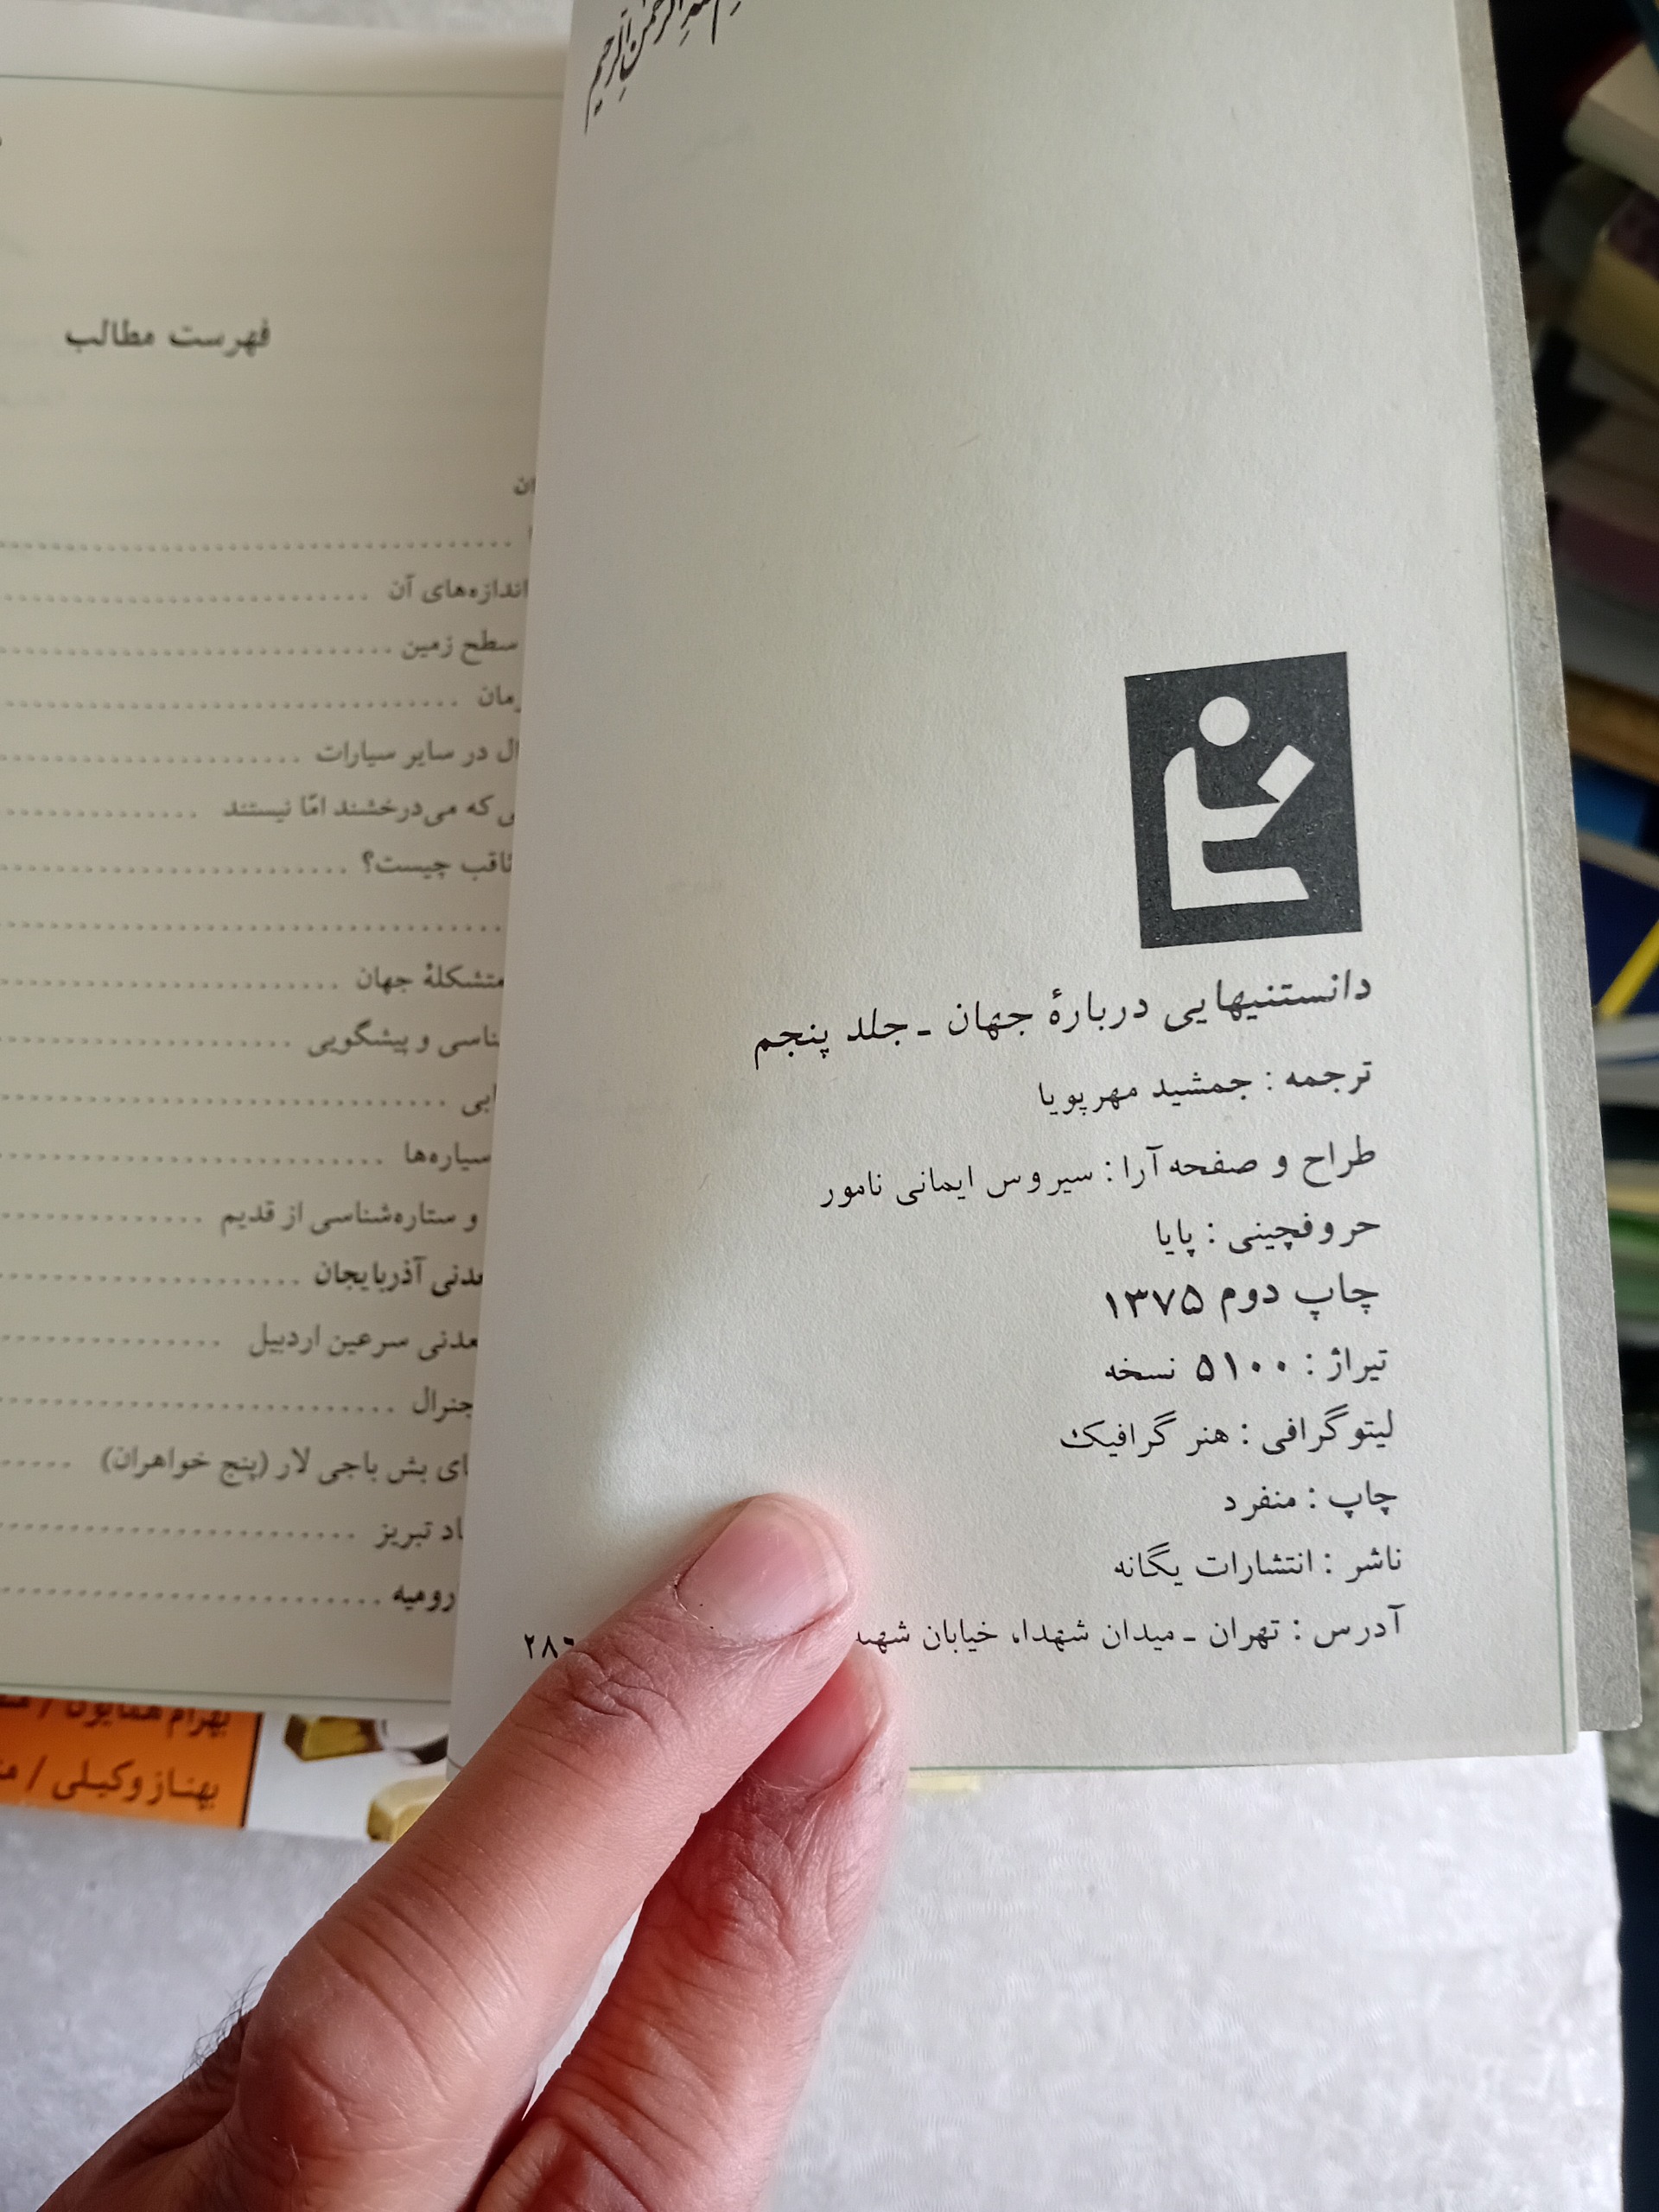 الرحمن الرحیم
دانستنیهایی دربارهٔ جهان ـ جلد پنجم
ترجمه : جمشید مهرپویا
طراح و صفحه‌آرا : سیروس ایمانی نامور
حروفچینی : پایا
چاپ دوم ۱۳۷۵
تیراژ : ۵۱۰۰ نسخه
لیتوگرافی : هنر گرافیک
چاپ : منفرد
ناشر : انتشارات یگانه
آدرس : تهران ـ میدان شهدا، خیابان
فهرست مطالب
اندازه‌های آن
سطح زمین
در سایر سیارات
که می‌درخشند امّا نیستند
چیست؟
متشکلهٔ جهان
و پیشگویی
سیاره‌ها
و ستاره‌شناسی از قدیم
آذربایجان
سرعین اردبیل
جنرال
بش باجی لار (پنج خواهران)
تبریز
بهرام همایون /
بهناز وکیلی /